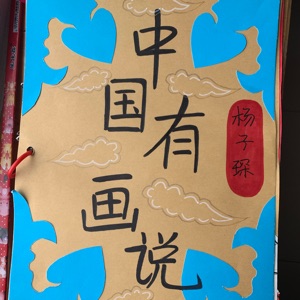 中国有画说
杨子琛